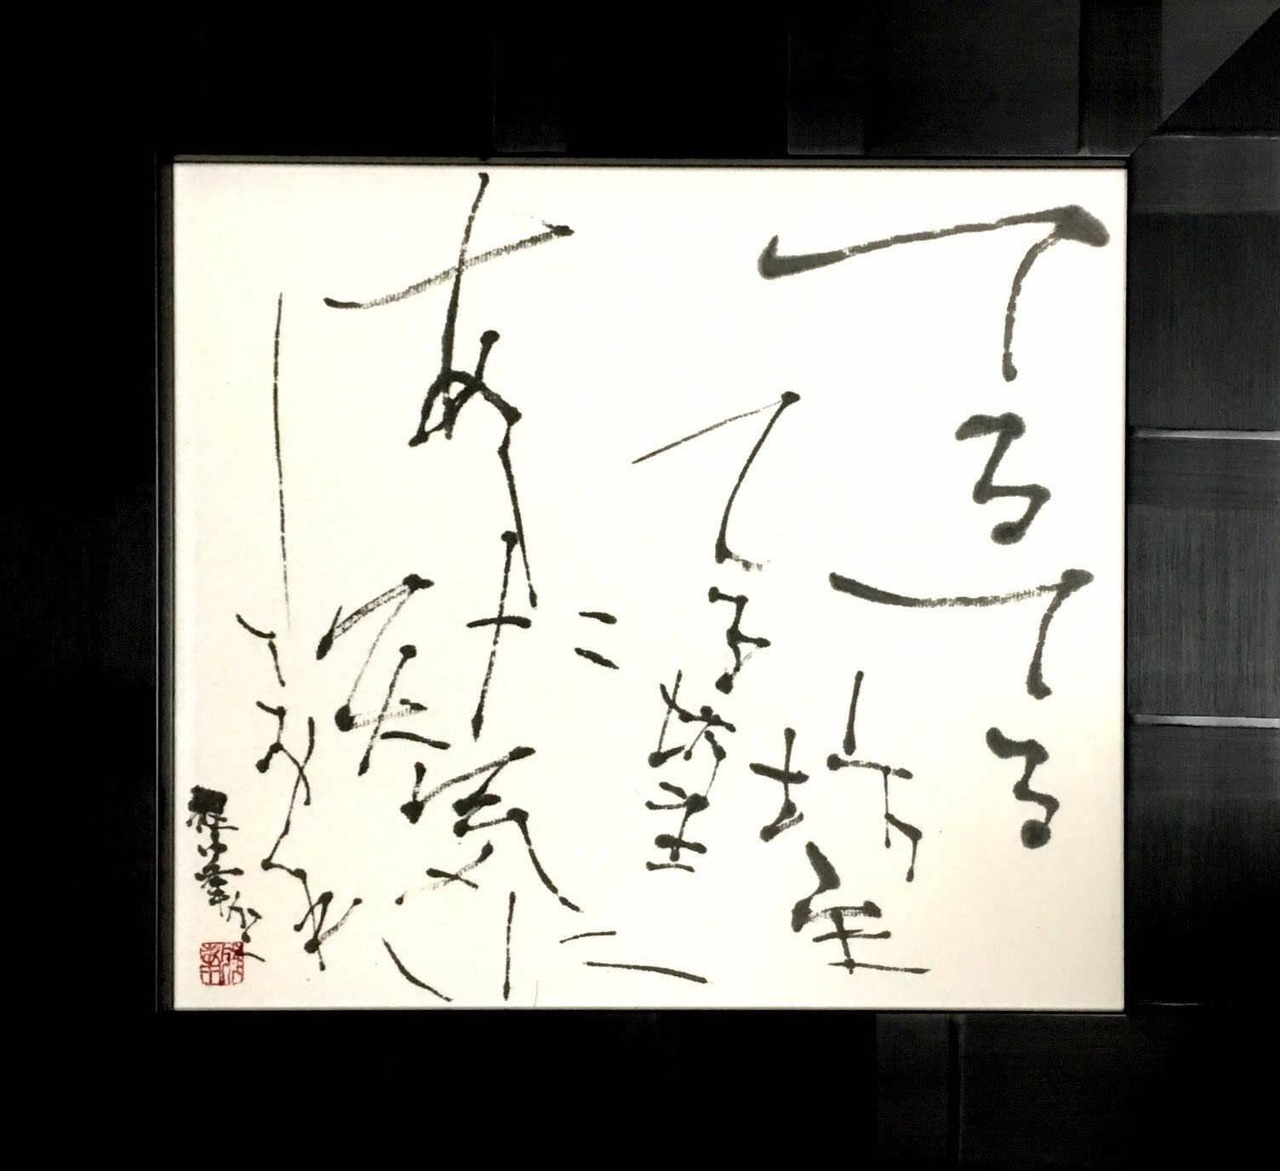 てるてる
坊主
てる坊主
あした
天気に
して
おくれ